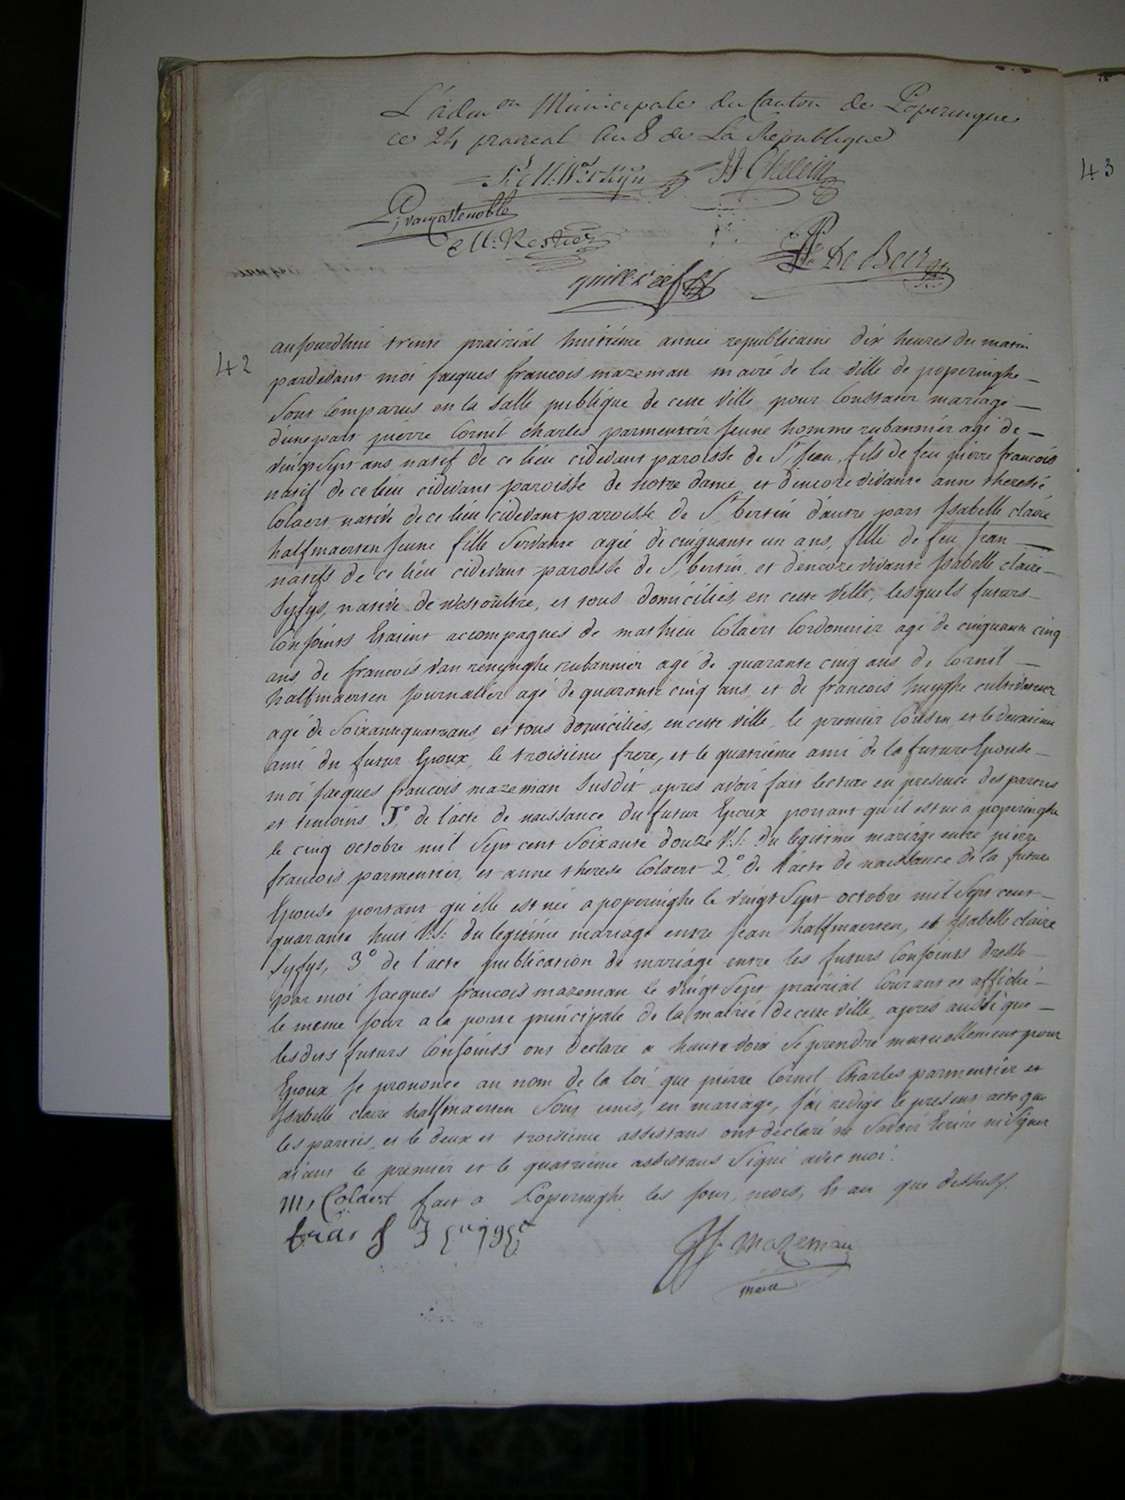 L'adm.on Municipale du Canton de Poperingue
ce 24 prareal An 8 de La Republique
43
P: vancostenoble
De Beir
42
aujourdhui trente prairial huitieme année republicaine dix heures du matin
pardevant moi jacques francois mazeman maire de la ville de poperinghe
Sont comparus en la salle publique de cette ville pour Constater mariage
d'une part pierre Cornil charles parmentier jeune homme rubannier agé de
vingt sept ans natif de ce lieu cidevant paroisse de St jean, fils de feu pierre francois
natif de ce lieu cidevant paroisse de notre dame, et d'encore vivante anne therese
Colaert native de ce lieu cidevant paroisse de St bertin d'autre part Isabelle claire
halfmaerten jeune fille Servante agée de cinquante un ans, fille de feu jean
natifs de ce lieu cidevant paroisse de St bertin et d'encore vivante Isabelle claire
Syfys, native de westoultre, et tous domiciliés en cette ville, lesquels futurs
Conjoints Etaient accompagnés de mathieu Colaert Cordonnier agé de cinquante cinq
ans de francois van renynghe rubannier agé de quarante cinq ans de Cornil
halfmaerten journalier agé de quarante cinq ans, et de francois huyghe cultivateur
agé de Soixante quatre ans et tous domiciliés, en cette ville, le premier Cousin, et le deuxieme
ami du futur Epoux, le troisieme frere, et le quatrieme ami de la future Epouse
moi jacques francois mazeman Susdit apres avoir fait lecture en presence des parties
et temoins 1° de l'acte de naissance du futur Epoux portant qu'il est né a poperinghe
le cinq octobre mil Sept cent Soixante douze V.S. du legitime mariage entre pierre
francois parmentier, et anne therese Colaert 2° de l'acte de naissance de la future
Epouse portant qu'elle est née a poperinghe le vingt Sept octobre mil Sept cent
quarante huit V.S. du legitime mariage entre jean halfmaerten, et Isabelle claire
Syfys, 3° de l'acte publication de mariage entre les futurs Conjoints dressé
par moi jacques francois mazeman le vingt Sept prairial Courant et affiché
le meme jour a la porte principale de la mairie de cette ville, après aussi que
lesdits futurs Conjoints ont declaré a haute voix Se prendre mutuellement pour
Epoux je prononce au nom de la loi que pierre Cornil Charles parmentier et
Isabelle claire halfmaerten Sont unis, en mariage, j'ai redigé le present acte que
les parties, et le deux et troisieme assistans ont declaré ne Savoir Ecrire ni Signer
aiant le premier et le quatrieme assistans Signé avec moi.
M, Colaert fait a Poperinghe les jour, mois, et an que dessus.
mazeman
maire